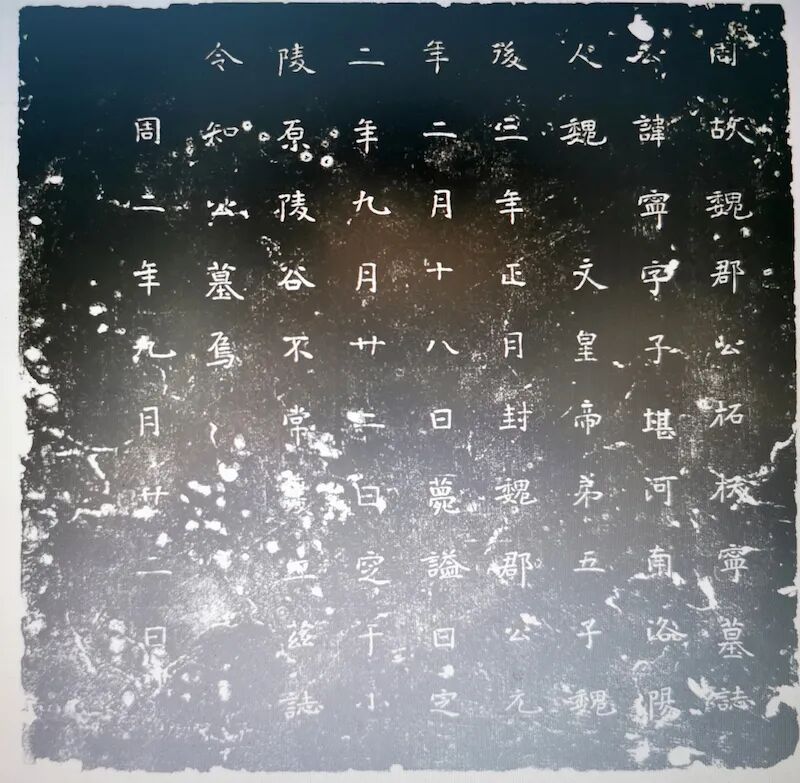 周故魏郡公柘柭寧墓誌
公諱寧字子堪河南洛陽
人魏文皇帝弟五子魏
後三年正月封魏郡公元
年二月十八日薨謚曰定
二年九月廿二日窆于小
陵原陵谷不常立茲誌
令知公墓焉
周二年九月廿二日